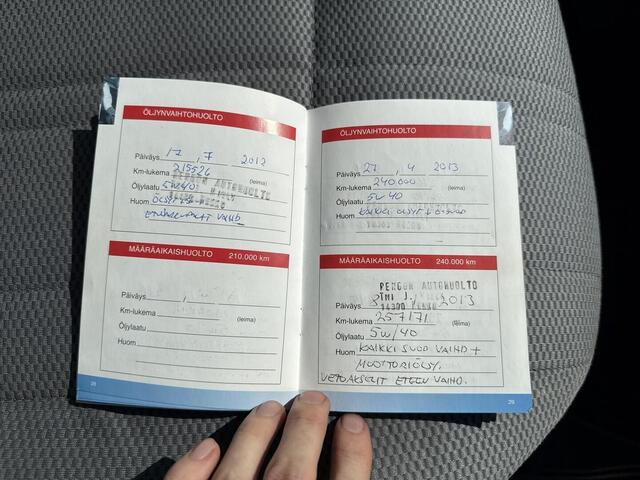 ÖLJYNVAIHTOHUOLTO
Päiväys 17 . 7 2012
Km-lukema 215526 (leima)
Öljylaatu 5W40
Huom
VAIHD
MÄÄRÄAIKAISHUOLTO 210.000 km
Päiväys
Km-lukema (leima)
Öljylaatu
Huom
28
ÖLJYNVAIHTOHUOLTO
Päiväys 27 . 4 2013
Km-lukema 240.000
Öljylaatu 5W40
Huom KAIKKI ÖLJYT +
MÄÄRÄAIKAISHUOLTO 240.000 km
AUTOHUOLTO
TMI J.
Päiväys 2013
14300
Km-lukema 257171 (leima)
Öljylaatu 5W/40
Huom KAIKKI SUOD VAIHD +
MOOTTORIÖLJY.
VETOAKSELIT ETEEN VAIHD.
29